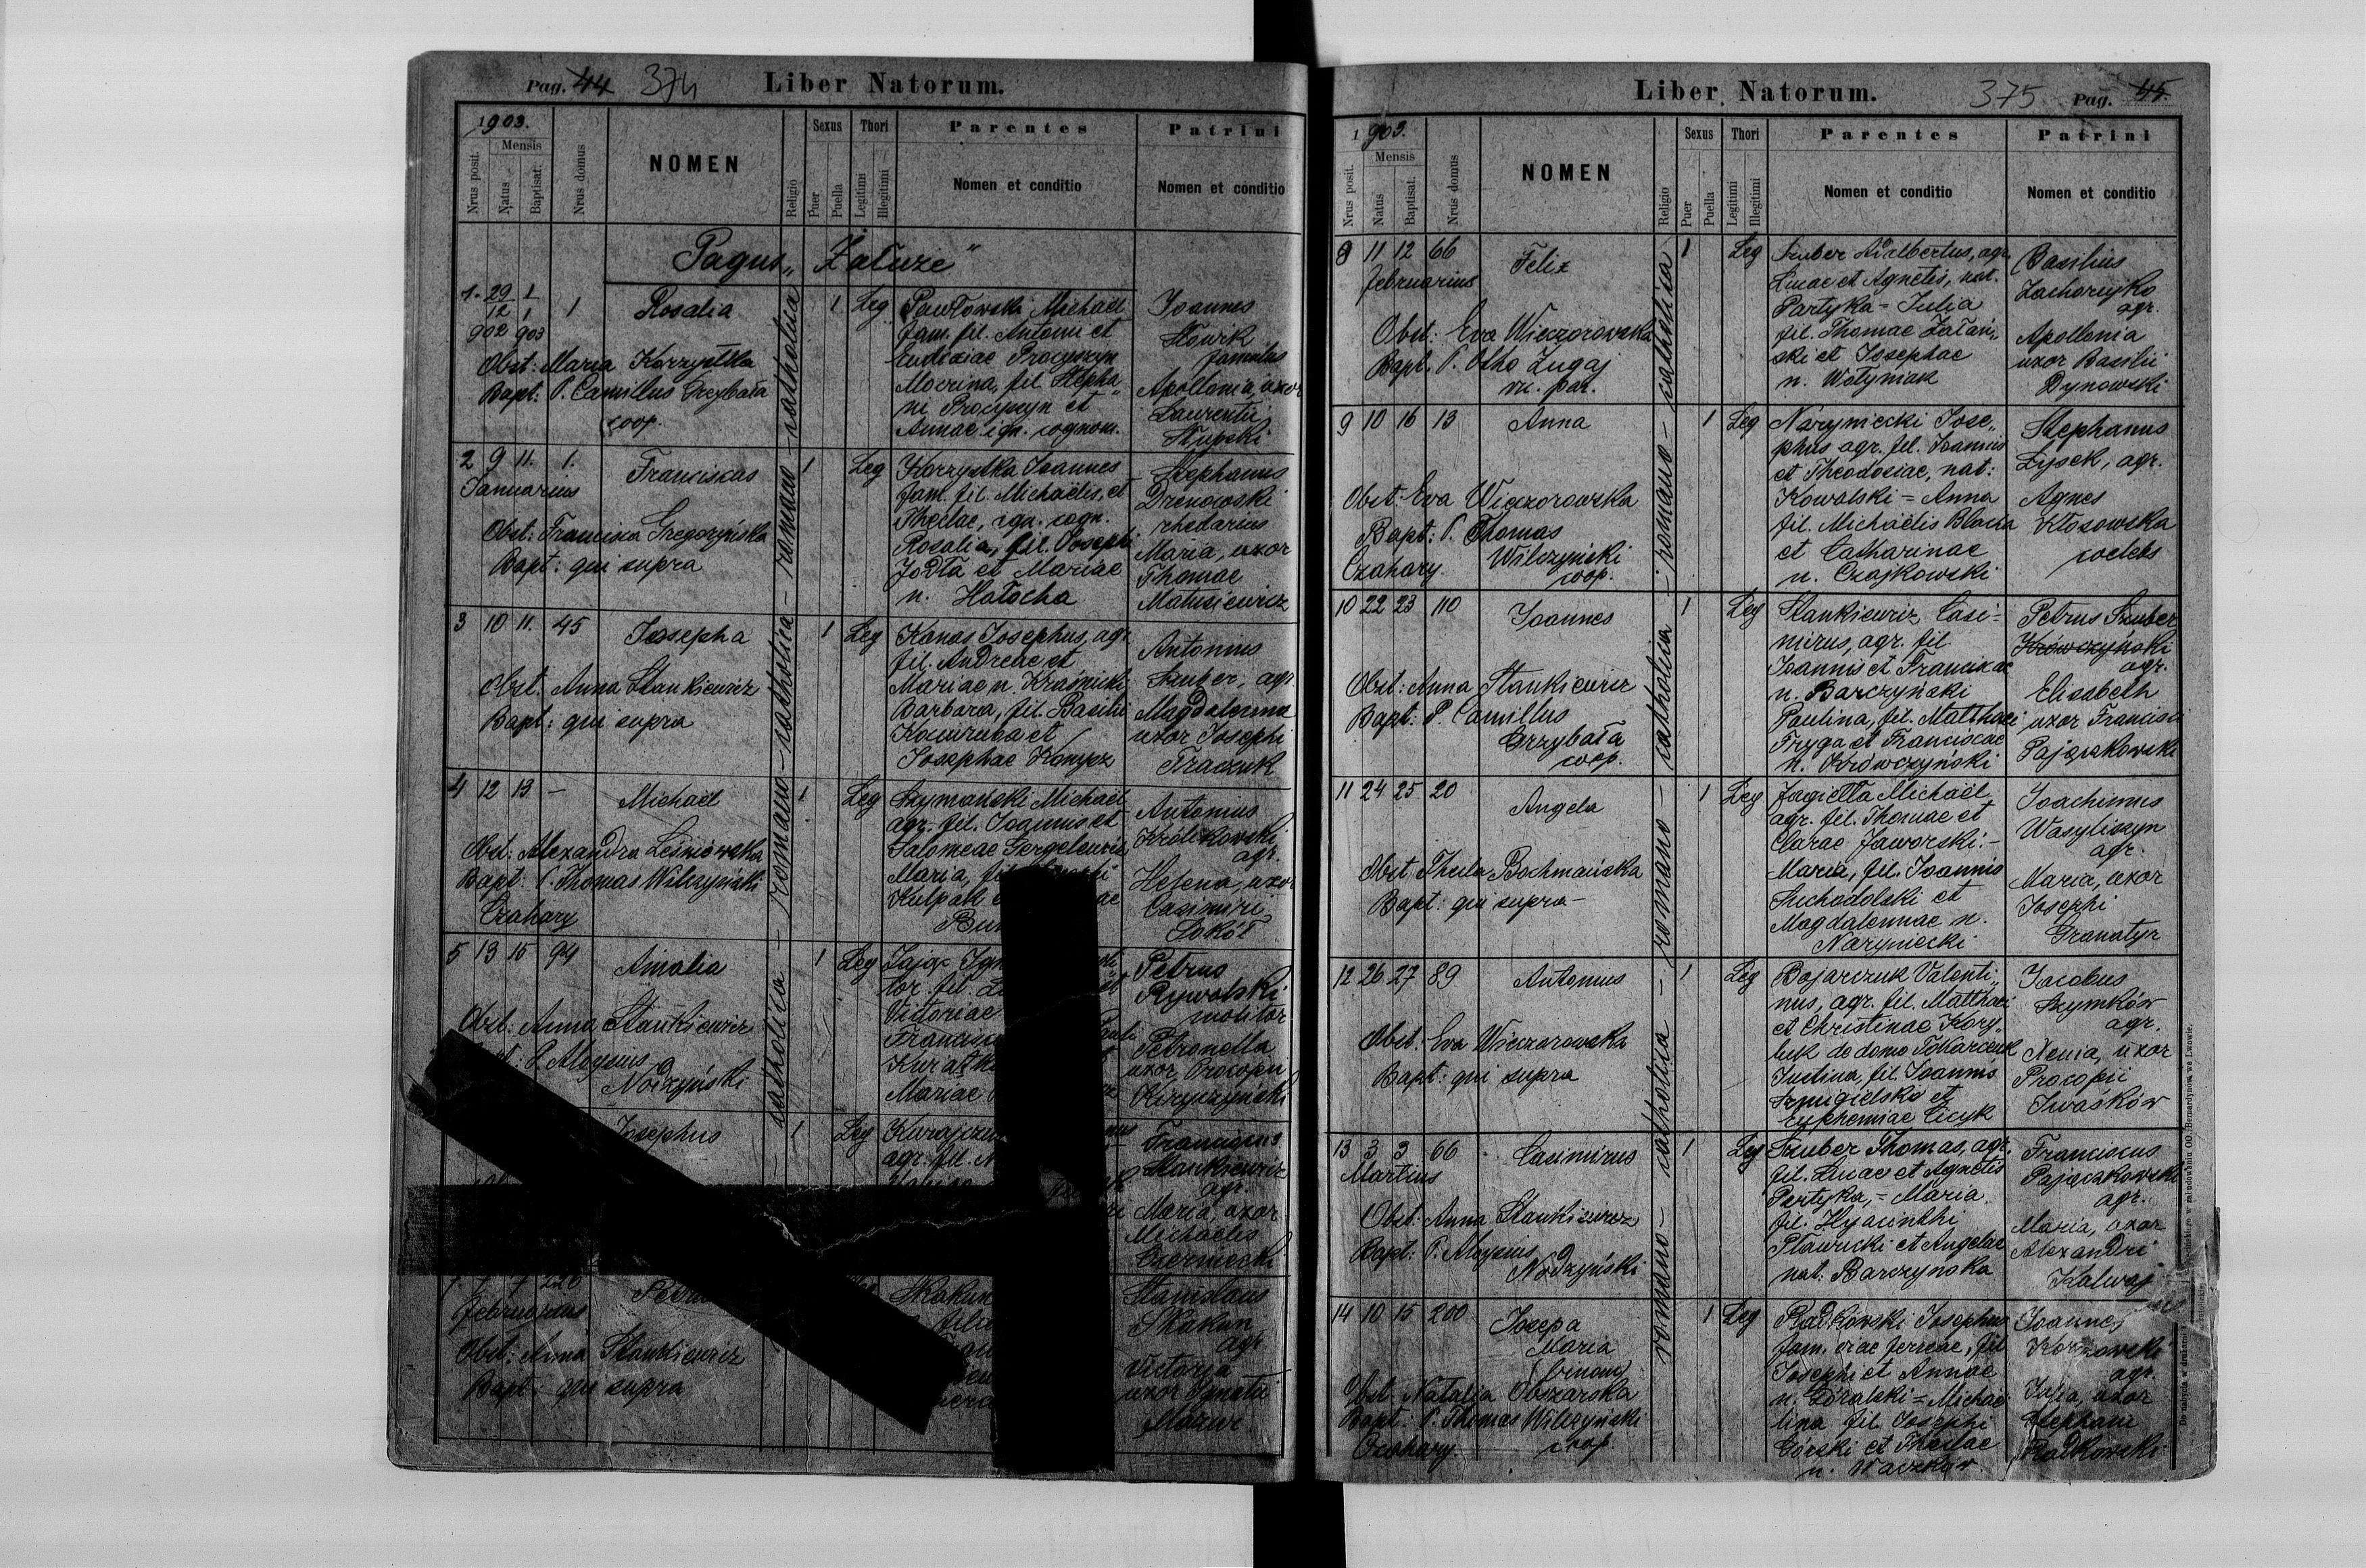 Pag. 44 374 Liber Natorum.
1903.
Nrus posit.
Mensis
Natus
Baptisat.
Nrus domus
NOMEN
Religio
Sexus
Puer
Puella
Thori
Legitimi
Illegitimi
Parentes
Nomen et conditio
Patrini
Nomen et conditio
Pagus „Załuże"
romano-catholica - romano-catholica - romano-catholica
1. 29/12 902 1/1 903 1
Rosalia
1 Leg
Obst: Maria Korzystka
Bapt: P. Camillus Grzybała
coop.
Pawłowski Michael
fam. fil. Antonii et
Eudoxiae Procyszyn
Mocrina, fil. Stepha„
ni Procyszyn et
Annae ign. cognom.
Joannes
famulus
Apollonia, uxor
Laurentii
Słupski
2 9 11. 1.
Januarius
Franciscus
1 Leg
Obst: Francisca Gregorzyńska
Bapt: qui supra
Korzystka Joannes
fam. fil. Michaëlis, et
Theclae, ign. cogn.
Rosalia, fil. Josephi
Jodła et Mariae
n. Hałocha
Stephanus
Drenowski
rhedarius
Maria, uxor
Thomae
Matusiewicz
3 10 11. 45
Josepha
1 Leg
Obst: Anna Stankiewicz
Bapt: qui supra
Kanas Josephus, agr.
fil. Andreae et
Mariae n. Kraśnicki
Barbara, fil. Basilii
et
Josephae Konysz
Antonius
Szuber, agr.
Magdalenna
uxor Josephi
Traczuk
4 12 13 -
Michaël
1 Leg
Obst: Alexandra Leśniowska
Bapt: P. Thomas Wilczyński
Czahary
Szymański Michaël
agr. fil. Joannis et
Salomeae
Maria,
Kulpak
Antonius
Królikowski
agr.
Helena, uxor
Casimiri
Sokół
5 13 15 94
Amalia
1 Leg
Obst: Anna Stankiewicz
P. Aloysius
Nodzyński
Zając
Victoriae
Mariae
Petrus
Rywolski
molitor
Petronella
uxor Procopii
Kiryczyński
Josephus
1 Leg
agr. fil.
Franciscus
Stankiewicz
agr.
Maria, uxor
Michaëlis
Czerniecki
Februarius
Obst: Anna Stankiewicz
Bapt: qui supra
Skakun
Stanislaus
Skakun
agr.
Victoria
uxor Ignatii
Mazur
Liber Natorum. 375 Pag. 45.
1903.
Nrus posit.
Mensis
Natus
Baptisat.
Nrus domus
NOMEN
Religio
Sexus
Puer
Puella
Thori
Legitimi
Illegitimi
Parentes
Nomen et conditio
Patrini
Nomen et conditio
romano - catholica - romano - catholica - romano - catholica
8 11 12 66
Februarius
Felix
1 Leg
Obst: Eva Wieczorowska
Bapt. P. Otho Zugaj
vic. par.
Szuber Adalbertus, agr.
Lucae et Agnetis, nat.
Partyka = Julia
fil. Thomae Załań„
ski et Josephae
n. Wołyniak
Basilius
Zachorujko
agr.
Apollonia
uxor Basilii
Dynowski
9 10 16 13
Anna
1 Leg
Obst: Eva Wieczorowska
Bapt: P. Thomas
Wilczyński
coop.
Czahary
Naryniecki Jose„
phus agr. fil. Joannis
et Theodosiae, nat:
Kowalski = Anna
fil. Michaëlis Blacha
et Catharinae
n. Czajkowski
Stephanus
Łysek, agr.
Agnes
Kłosowska
coelebs
10 22 23 110
Joannes
1 Leg
Obst: Anna Stankiewicz
Bapt: P. Camillus
Grzybała
coop.
Stankiewicz Casi=
mirus, agr. fil.
Joannis et Franciscae
n. Barczyński
Paulina, fil. Matthaei
Fryga et Franciscae
n. Krówczyński
Petrus Szuber
Krówczyński
agr.
Elisabeth
uxor Francisci
Pajączkowski
11 24 25 20
Angela
1 Leg
Obst: Thecla Bochmańska
Bapt: qui supra -
Jagiełła Michaël
agr. fil. Thomae et
Clarae Jaworski. -
Maria, fil. Joannis
Suchodolski et
Magdalennae n.
Naryniecki
Joachimus
Wasyliszyn
agr.
Maria, uxor
Josephi
Granatyr
12 26 27 89
Antonius
1 Leg
Obst: Eva Wieczorowska
Bapt: qui supra
Bojarczuk Valenti„
nus, agr. fil. Matthaei
et Christinae Kory„
luk de domo Tokarczuk
Justina, fil. Joannis
Szmigielski et
Euphemiae Cicyk
Jacobus
Szymków
agr.
Xenia, uxor
Procopii
Iwaśków
13 3 3 66
Martius
Casimirus
1 Leg
Obst: Anna Stankiewicz
Bapt: P. Aloysius
Nodzyński
Szuber Thomas, agr.
fil. Lucae et Agnetis
Partyka, = Maria
fil. Hyacinthi
Sławicki et Angelae
nat. Barczyńska
Franciscus
Pajączkowski
agr.
Maria, uxor
Alexandri
Kalwaj
14 10 15 200
Josepa
Maria
(binom)
1 Leg
Obst: Natalia Obszarska
Bapt: P. Thomas Wilczyński
Czahary coop.
Radkowski Josephus
fam. viae ferreae, fil.
Josephi et Annae
n. Góralski = Michae
lina fil. Josephi
Górski et Theclae
n. Waczków
Joannes
agr.
Julia, uxor
Stephani
Radkowski